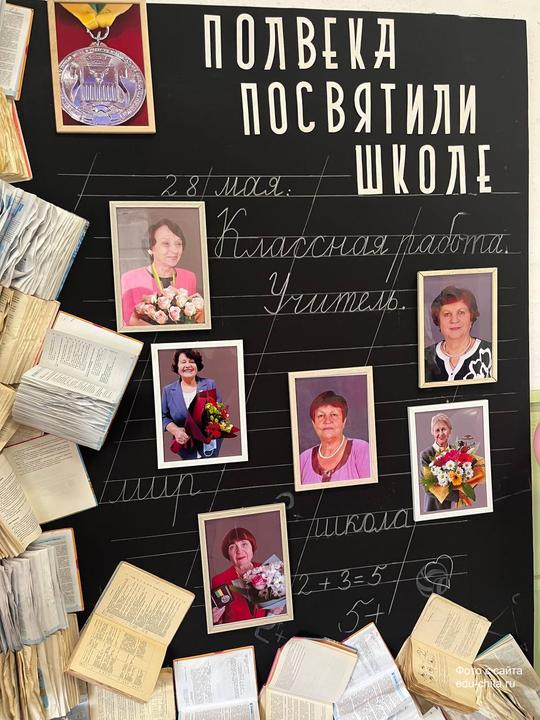 ПОЛВЕКА
ПОСВЯТИЛИ
ШКОЛЕ
28 мая:
Классная работа.
Учитель.
мир
школа
2 + 3 = 5
5+
Фото с сайта
edu-chita.ru